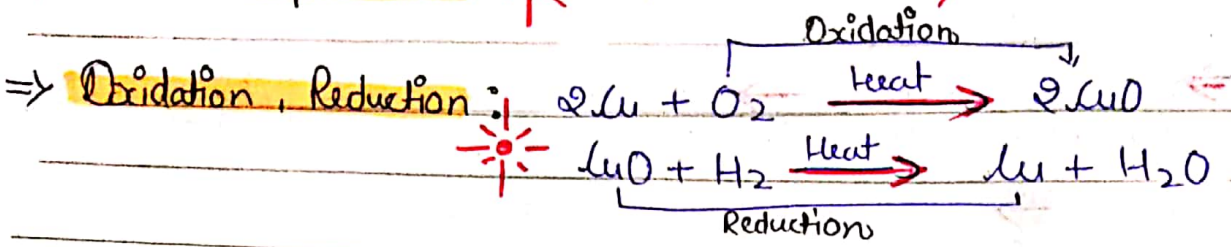 Oxidation
=> Oxidation, Reduction : 2Cu + O₂ Heat → 2CuO
CuO + H₂ Heat → Cu + H₂O
Reduction